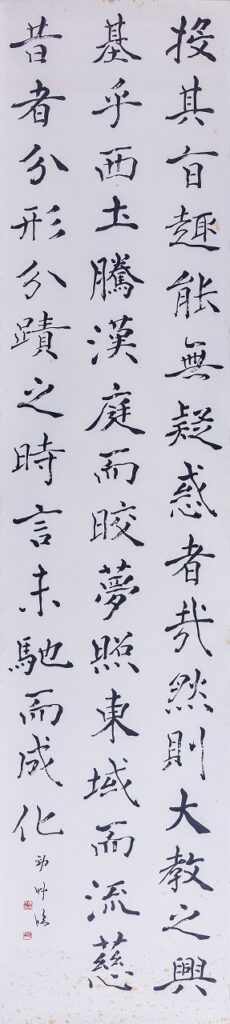 投其旨趣能無疑惑者哉然則大教之興
基乎西土騰漢庭而晈夢照東域而流慈
昔者分形分蹟之時言未馳而成化